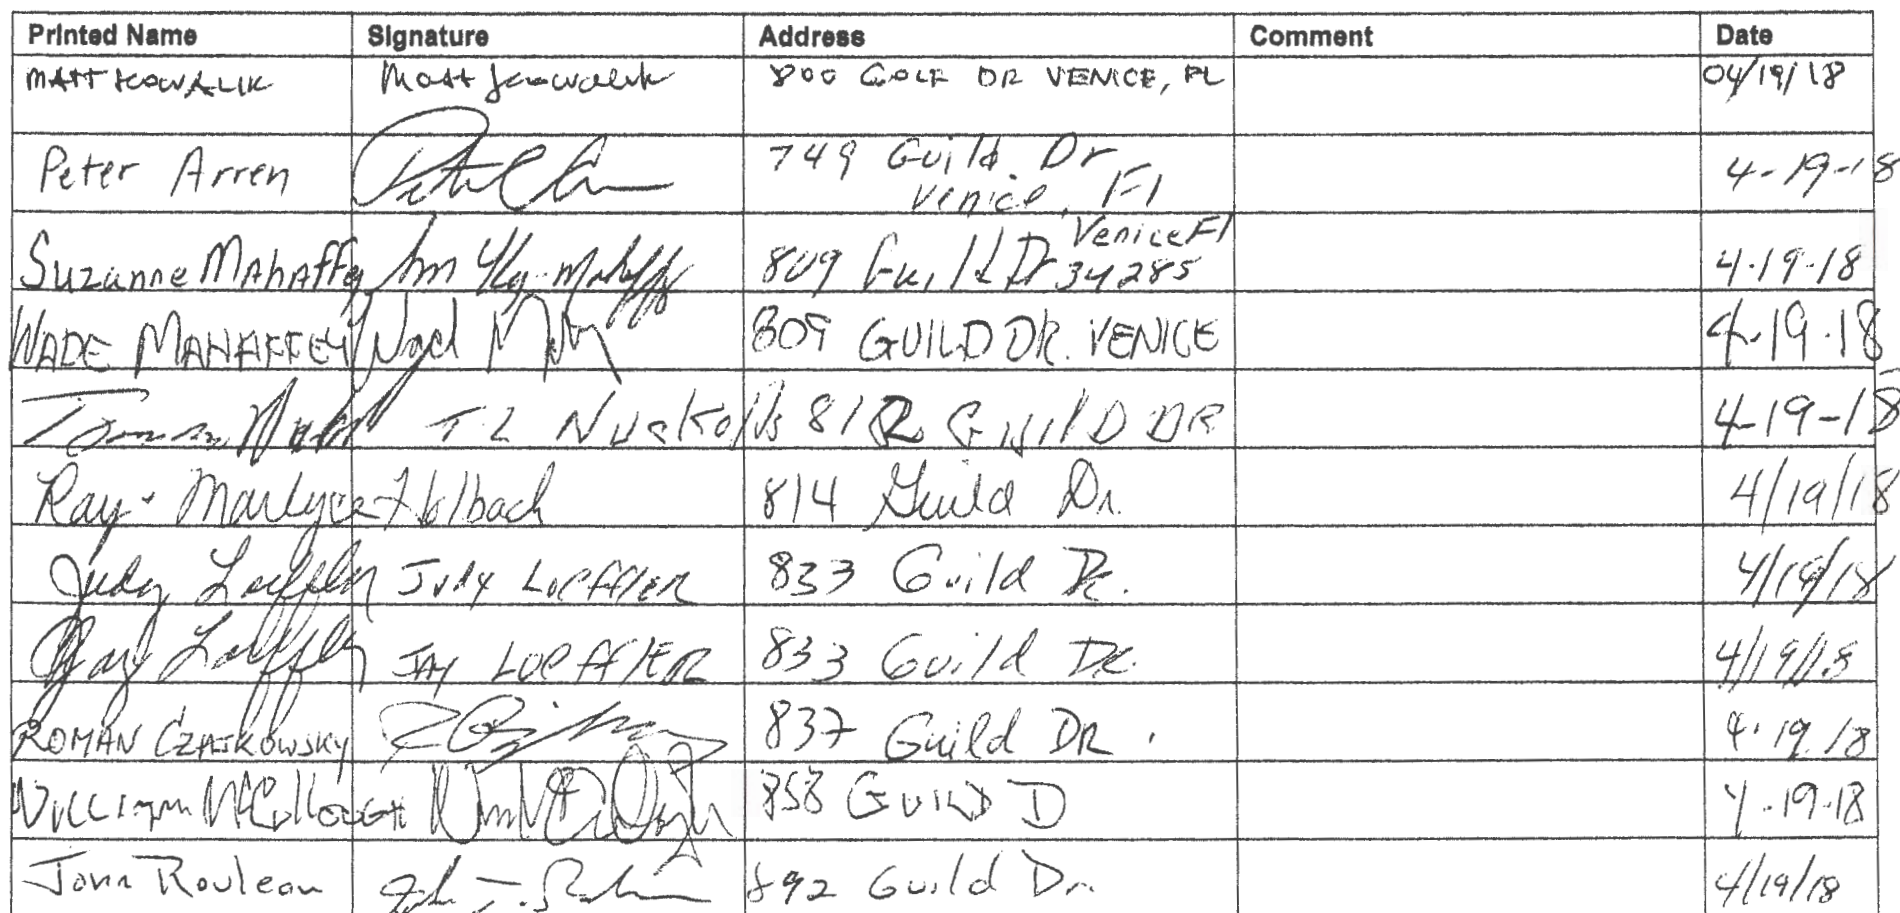 Printed Name Signature Address Comment Date
MATT KOWALIK Matt Kowalik 800 GOLF DR VENICE, FL 04/19/18
Peter Arren 749 Guild Dr 4-19-18
Venice, Fl
Venice Fl
Suzanne Mahaffey 809 Guild Dr 34285 4-19-18
WADE MAHAFFEY 809 GUILD DR. VENICE 4-19-18
T L Nuckolls 812 GUILD DR 4-19-18
Ray + Marlyce Holbach 814 Guild Dr. 4/19/18
Judy Loeffler Judy Loeffler 833 Guild Dr. 4/19/18
Jay Loeffler JAY LOEFFLER 833 Guild Dr. 4/19/18
ROMAN CZAJKOWSKY 837 Guild DR. 4-19-18
WILLIAM McCULLOUGH 858 GUILD D 4-19-18
John Rouleau 892 Guild Dr. 4/19/18